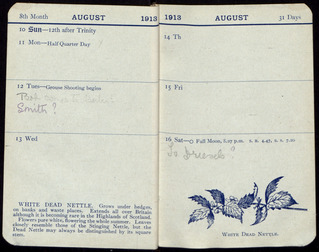 8th Month AUGUST 1913
10 Sun—12th after Trinity
11 Mon—Half Quarter Day ?
12 Tues—Grouse Shooting begins
Smith ?
13 Wed
WHITE DEAD NETTLE. Grows under hedges,
on banks and waste places. Extends all over Britain
although it is becoming rare in the Highlands of Scotland.
Flowers pure white, flowering the whole summer. Leaves
closely resemble those of the Stinging Nettle, but the
Dead Nettle may always be distinguished by its square
stem.
1913 AUGUST 31 Days
14 Th
15 Fri
16 Sat— Full Moon, 8.27 p.m. R. 4.47, S. 7.20
To ?
WHITE DEAD NETTLE.